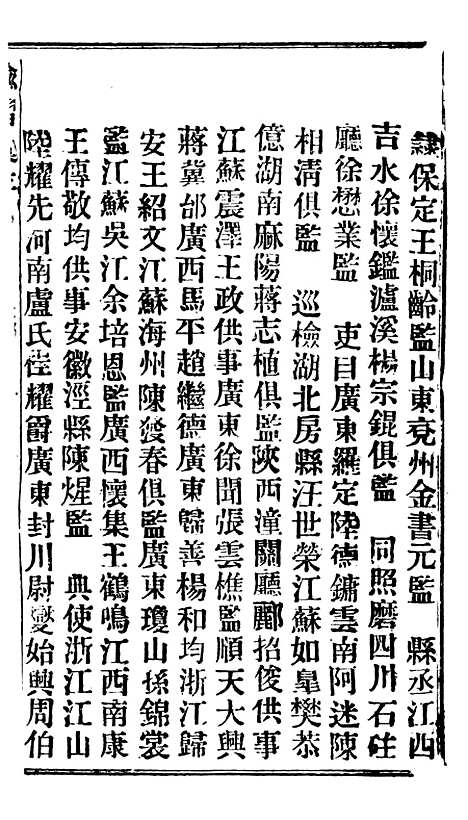 隸保定王桐齡監山東兗州金書元監　縣丞江西
吉水徐懷鑑瀘溪楊宗錕俱監　同照磨四川石砫
廳徐懋業監　吏目廣東羅定陸德鏞雲南阿迷陳
相清俱監　巡檢湖北房縣汪世榮江蘇如臯樊恭
億湖南麻陽蔣志植俱監陝西潼關廳酈招俊供事
江蘇震澤王政供事廣東徐聞張雲樵監順天大興
蔣冀邰廣西馬平趙繼德廣東歸善楊和均浙江歸
安王紹文江蘇海州陳發春俱監廣東瓊山孫錦裳
監江蘇吳江余培恩監廣西懷集王鶴鳴江西南康
王傳敬均供事安徽涇縣陳煋監　典使浙江江山
陸耀先河南盧氏崔耀爵廣東封川尉燮始興周伯